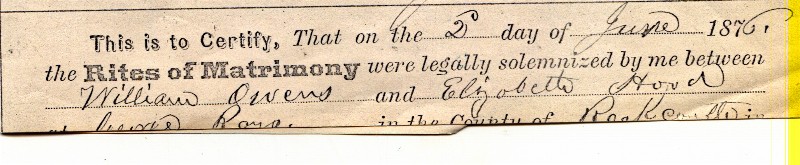 This is to Certify, That on the 2 day of June 1876.
the Rites of Matrimony were legally solemnized by me between
William Owens and Elizabeth Hood
at in the County of Rock in